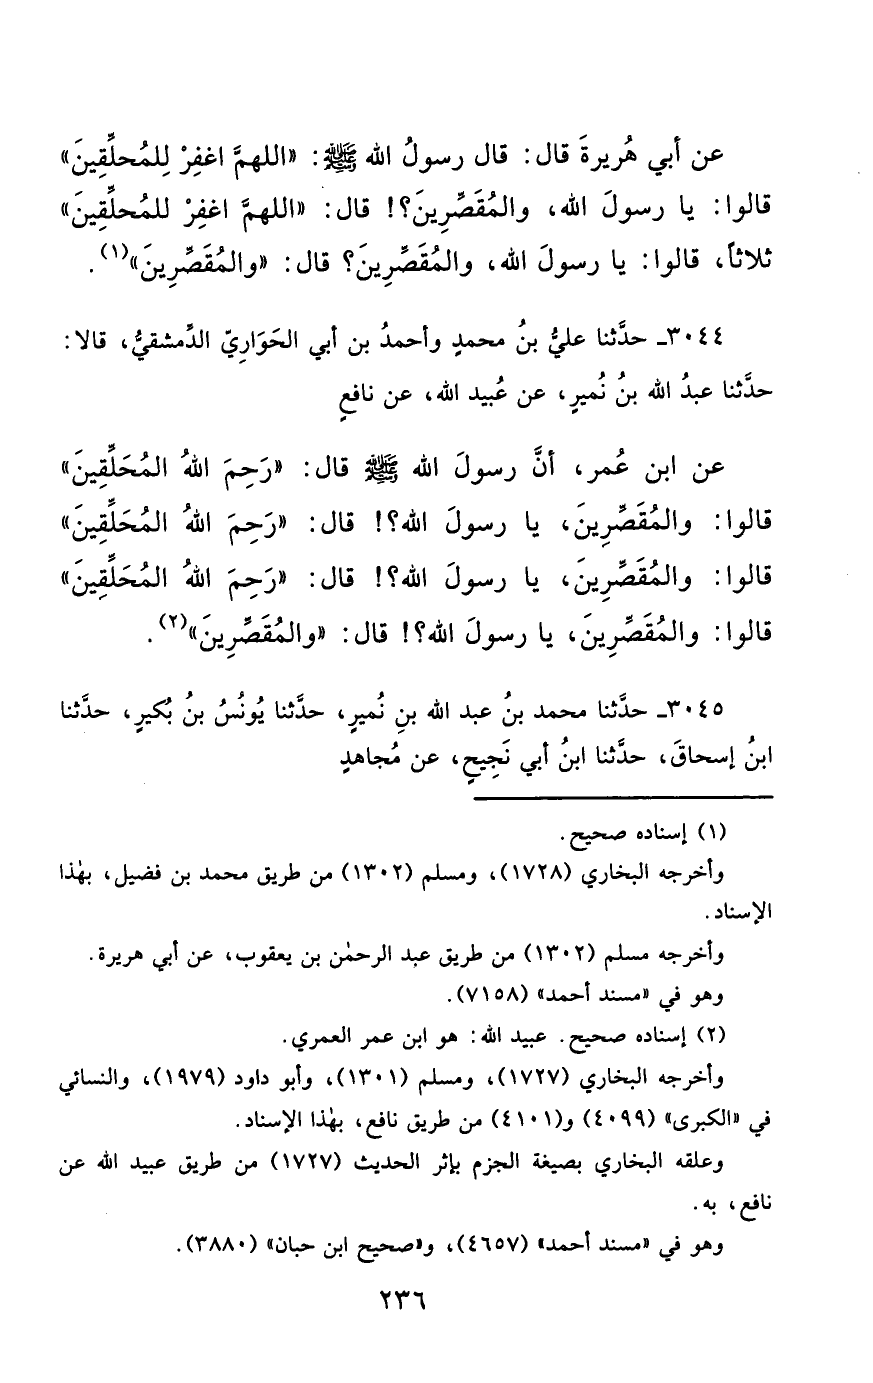 عن أبي هُريرةَ قال: قال رسولُ الله ﷺ: «اللهمَّ اغفِرْ لِلمُحلِّقِينَ»
قالوا: يا رسولَ الله، والمُقَصِّرِينَ؟! قال: «اللهمَّ اغفِرْ للمُحلِّقِينَ»
ثلاثاً، قالوا: يا رسولَ الله، والمُقَصِّرِينَ؟ قال: «والمُقَصِّرِينَ»(١).
٣٠٤٤ـ حدَّثنا عليُّ بنُ محمدٍ وأحمدُ بن أبي الحَوَاريّ الدِّمشقيُّ، قالا:
حدَّثنا عبدُ الله بنُ نُميرٍ، عن عُبيد الله، عن نافعٍ
عن ابن عُمر، أنَّ رسولَ الله ﷺ قال: «رَحِمَ اللهُ المُحَلِّقِينَ»
قالوا: والمُقَصِّرِينَ، يا رسولَ الله؟! قال: «رَحِمَ اللهُ المُحَلِّقِينَ»
قالوا: والمُقَصِّرِينَ، يا رسولَ الله؟! قال: «رَحِمَ اللهُ المُحَلِّقِينَ»
قالوا: والمُقَصِّرِينَ، يا رسولَ الله؟! قال: «والمُقَصِّرِينَ»(٢).
٣٠٤٥ـ حدَّثنا محمد بنُ عبد الله بنِ نُميرٍ، حدَّثنا يُونُسُ بنُ بُكيرٍ، حدَّثنا
ابنُ إسحاقَ، حدَّثنا ابنُ أبي نَجِيحٍ، عن مُجاهدٍ
(١) إسناده صحيح.
وأخرجه البخاري (١٧٢٨)، ومسلم (١٣٠٢) من طريق محمد بن فضيل، بهٰذا
الإسناد.
وأخرجه مسلم (١٣٠٢) من طريق عبد الرحمٰن بن يعقوب، عن أبي هريرة.
وهو في «مسند أحمد» (٧١٥٨).
(٢) إسناده صحيح. عبيد الله: هو ابن عمر العمري.
وأخرجه البخاري (١٧٢٧)، ومسلم (١٣٠١)، وأبو داود (١٩٧٩)، والنسائي
في «الكبرى» (٤٠٩٩) و(٤١٠١) من طريق نافع، بهٰذا الإسناد.
وعلقه البخاري بصيغة الجزم بإثر الحديث (١٧٢٧) من طريق عبيد الله عن
نافع، به.
وهو في «مسند أحمد» (٤٦٥٧)، و«صحيح ابن حبان» (٣٨٨٠).
٢٣٦